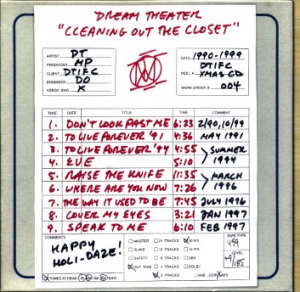 DREAM THEATER
"CLEANING OUT THE CLOSET"
ARTIST DT
PRODUCER MP
CLIENT DTIFC
ENGINEER DO
DATE 1990-1999
DTIFC
REEL # XMAS CD
WORK ORDER # 004
TAKE DATE TITLE TIME COMMENT
1. DON'T LOOK PAST ME 6:23 2/90, 10/99
2. TO LIVE FOREVER '91 4:36 MAY 1991
3. TO LIVE FOREVER '94 4:55 SUMMER 1994
4. EVE 5:10
5. RAISE THE KNIFE 11:35 MARCH 1996
6. WHERE ARE YOU NOW 7:26
7. THE WAY IT USED TO BE 7:45 JULY 1996
8. COVER MY EYES 3:21 JAN 1997
9. SPEAK TO ME 6:10 FEB 1997
COMMENTS
HAPPY
HOLI-DAZE!
MASTER
SAFETY
DUB
OUT TAKE
24 TRACKS
2 TRACKS
1 TRACK
30 IPS
15 IPS
TAPE TYPE
499